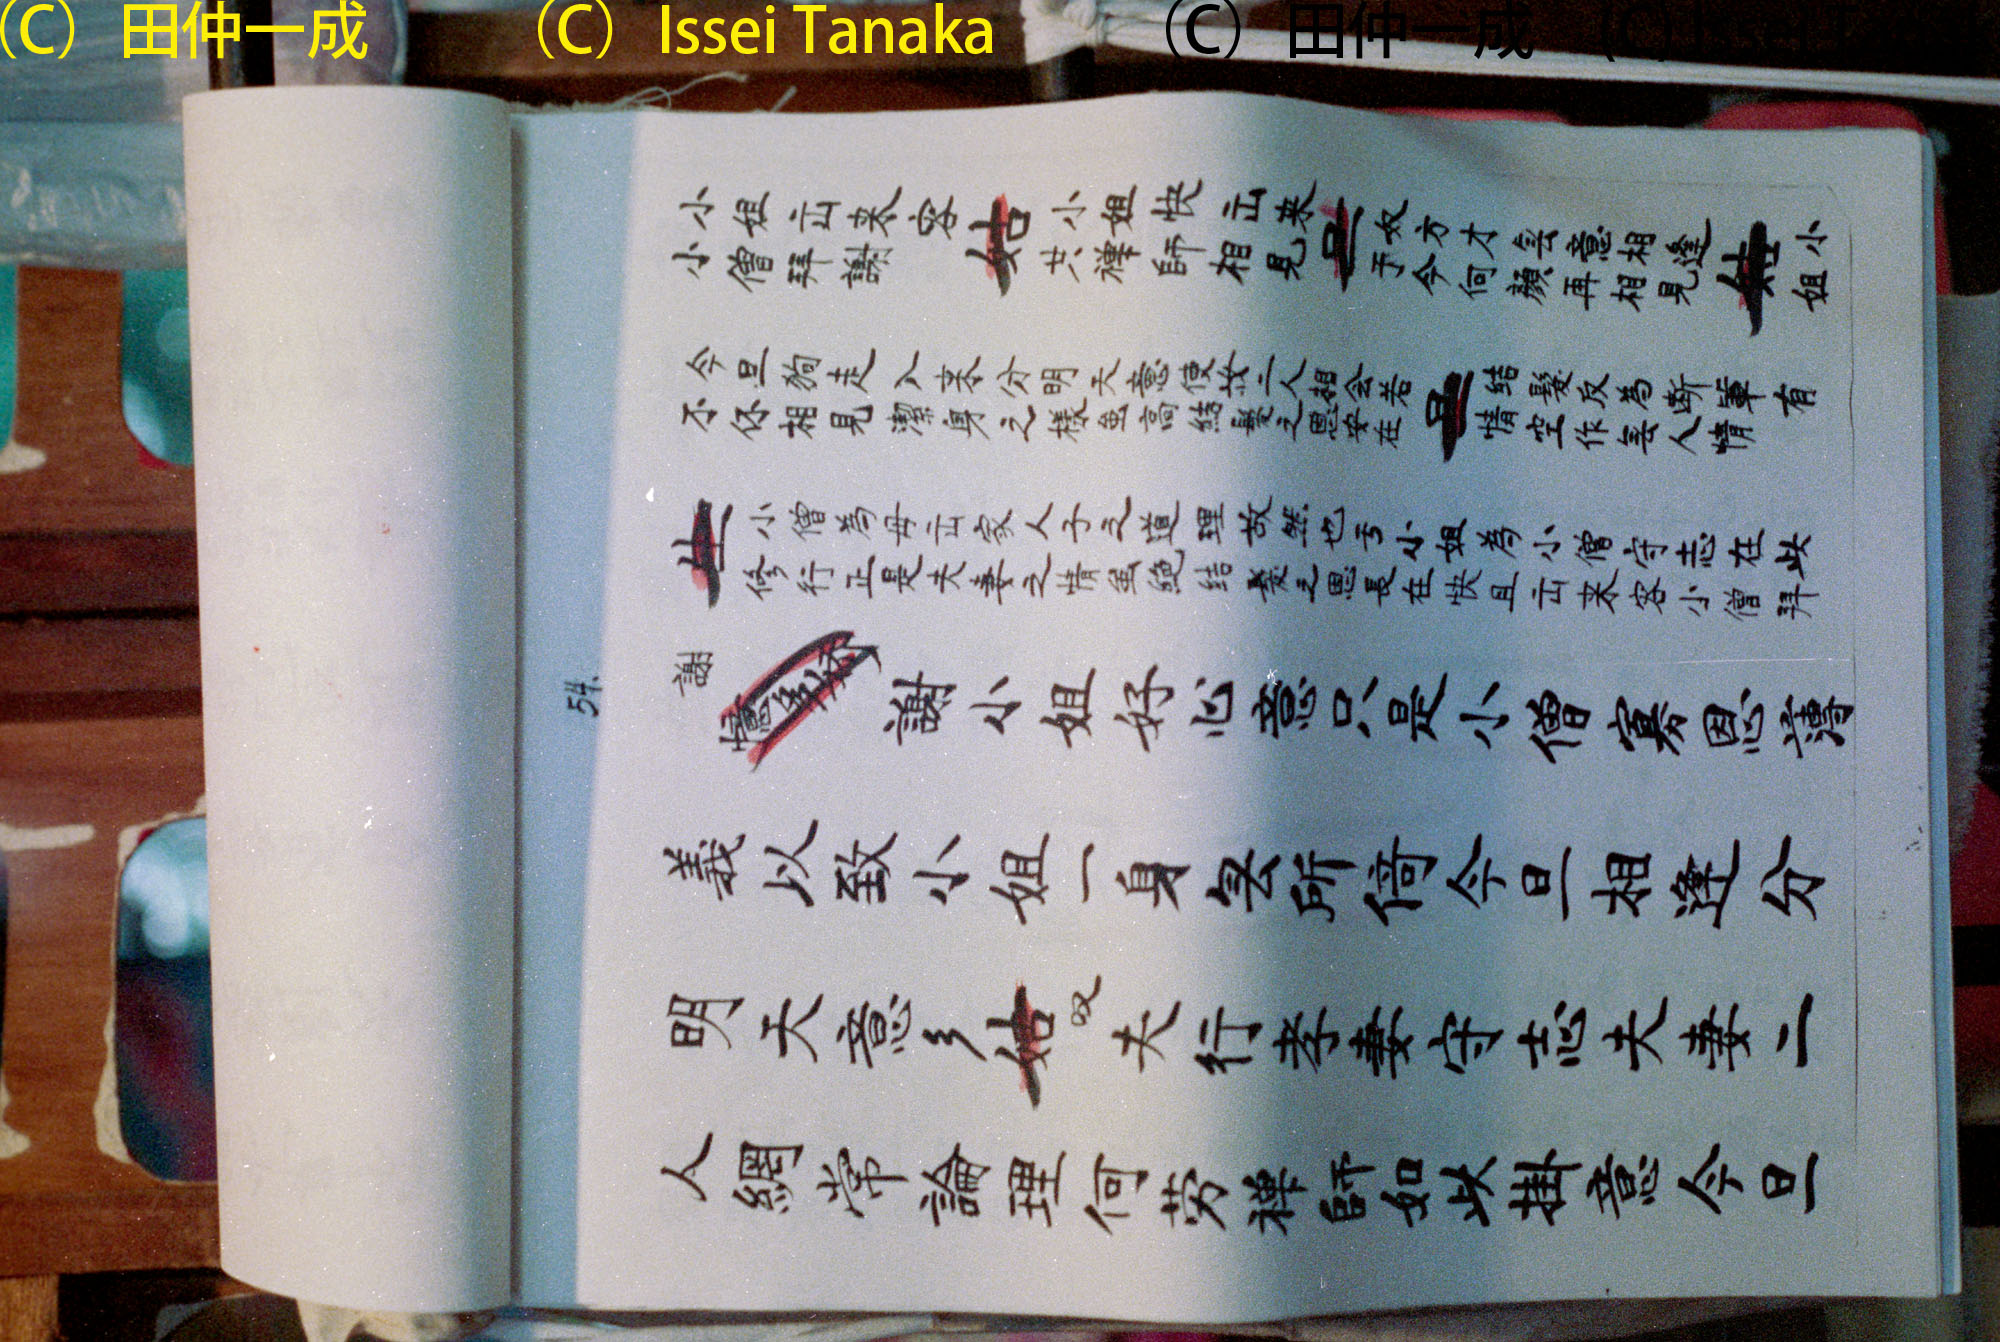 (C) 田仲一成 (C) Issei Tanaka (C) 田仲一成 (C) Issei T
54.
小姐出来容
小僧拜謝
姑
小姐快出来
共禅師相見
旦
奴方才無意相逢
于今何顔再相見
姑
小
姐
今旦狗走入来分明天意使奴二人相会若
不你相見潔身之樣虽高結髮之恩安在
旦
結髮反為断輩有
情空作無人情
生
小僧為母出家人子之道理故然也亏小姐為小僧守志在此
修行正是夫妻之情虽絶結髮之恩長在快且出来容小僧拜
謝
謝小姐好心意只是小僧寡恩薄
義以致小姐一身無所倚今旦相逢分
明天意〻姑叹夫行孝妻守志夫妻二
人綱常論理何劳禅師如此掛意今旦